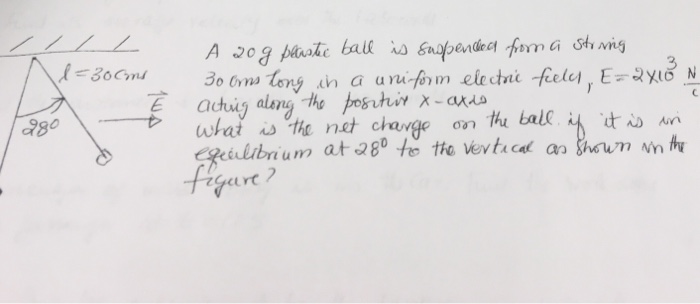 A 20g plastic ball is suspended from a string
l=30cms
30 cms long in a uniform electric field, E=2×10³ N/C
E⃗
acting along the positive x-axis
28°
What is the net charge on the ball if it is in
equilibrium at 28° to the vertical as shown in the
figure?